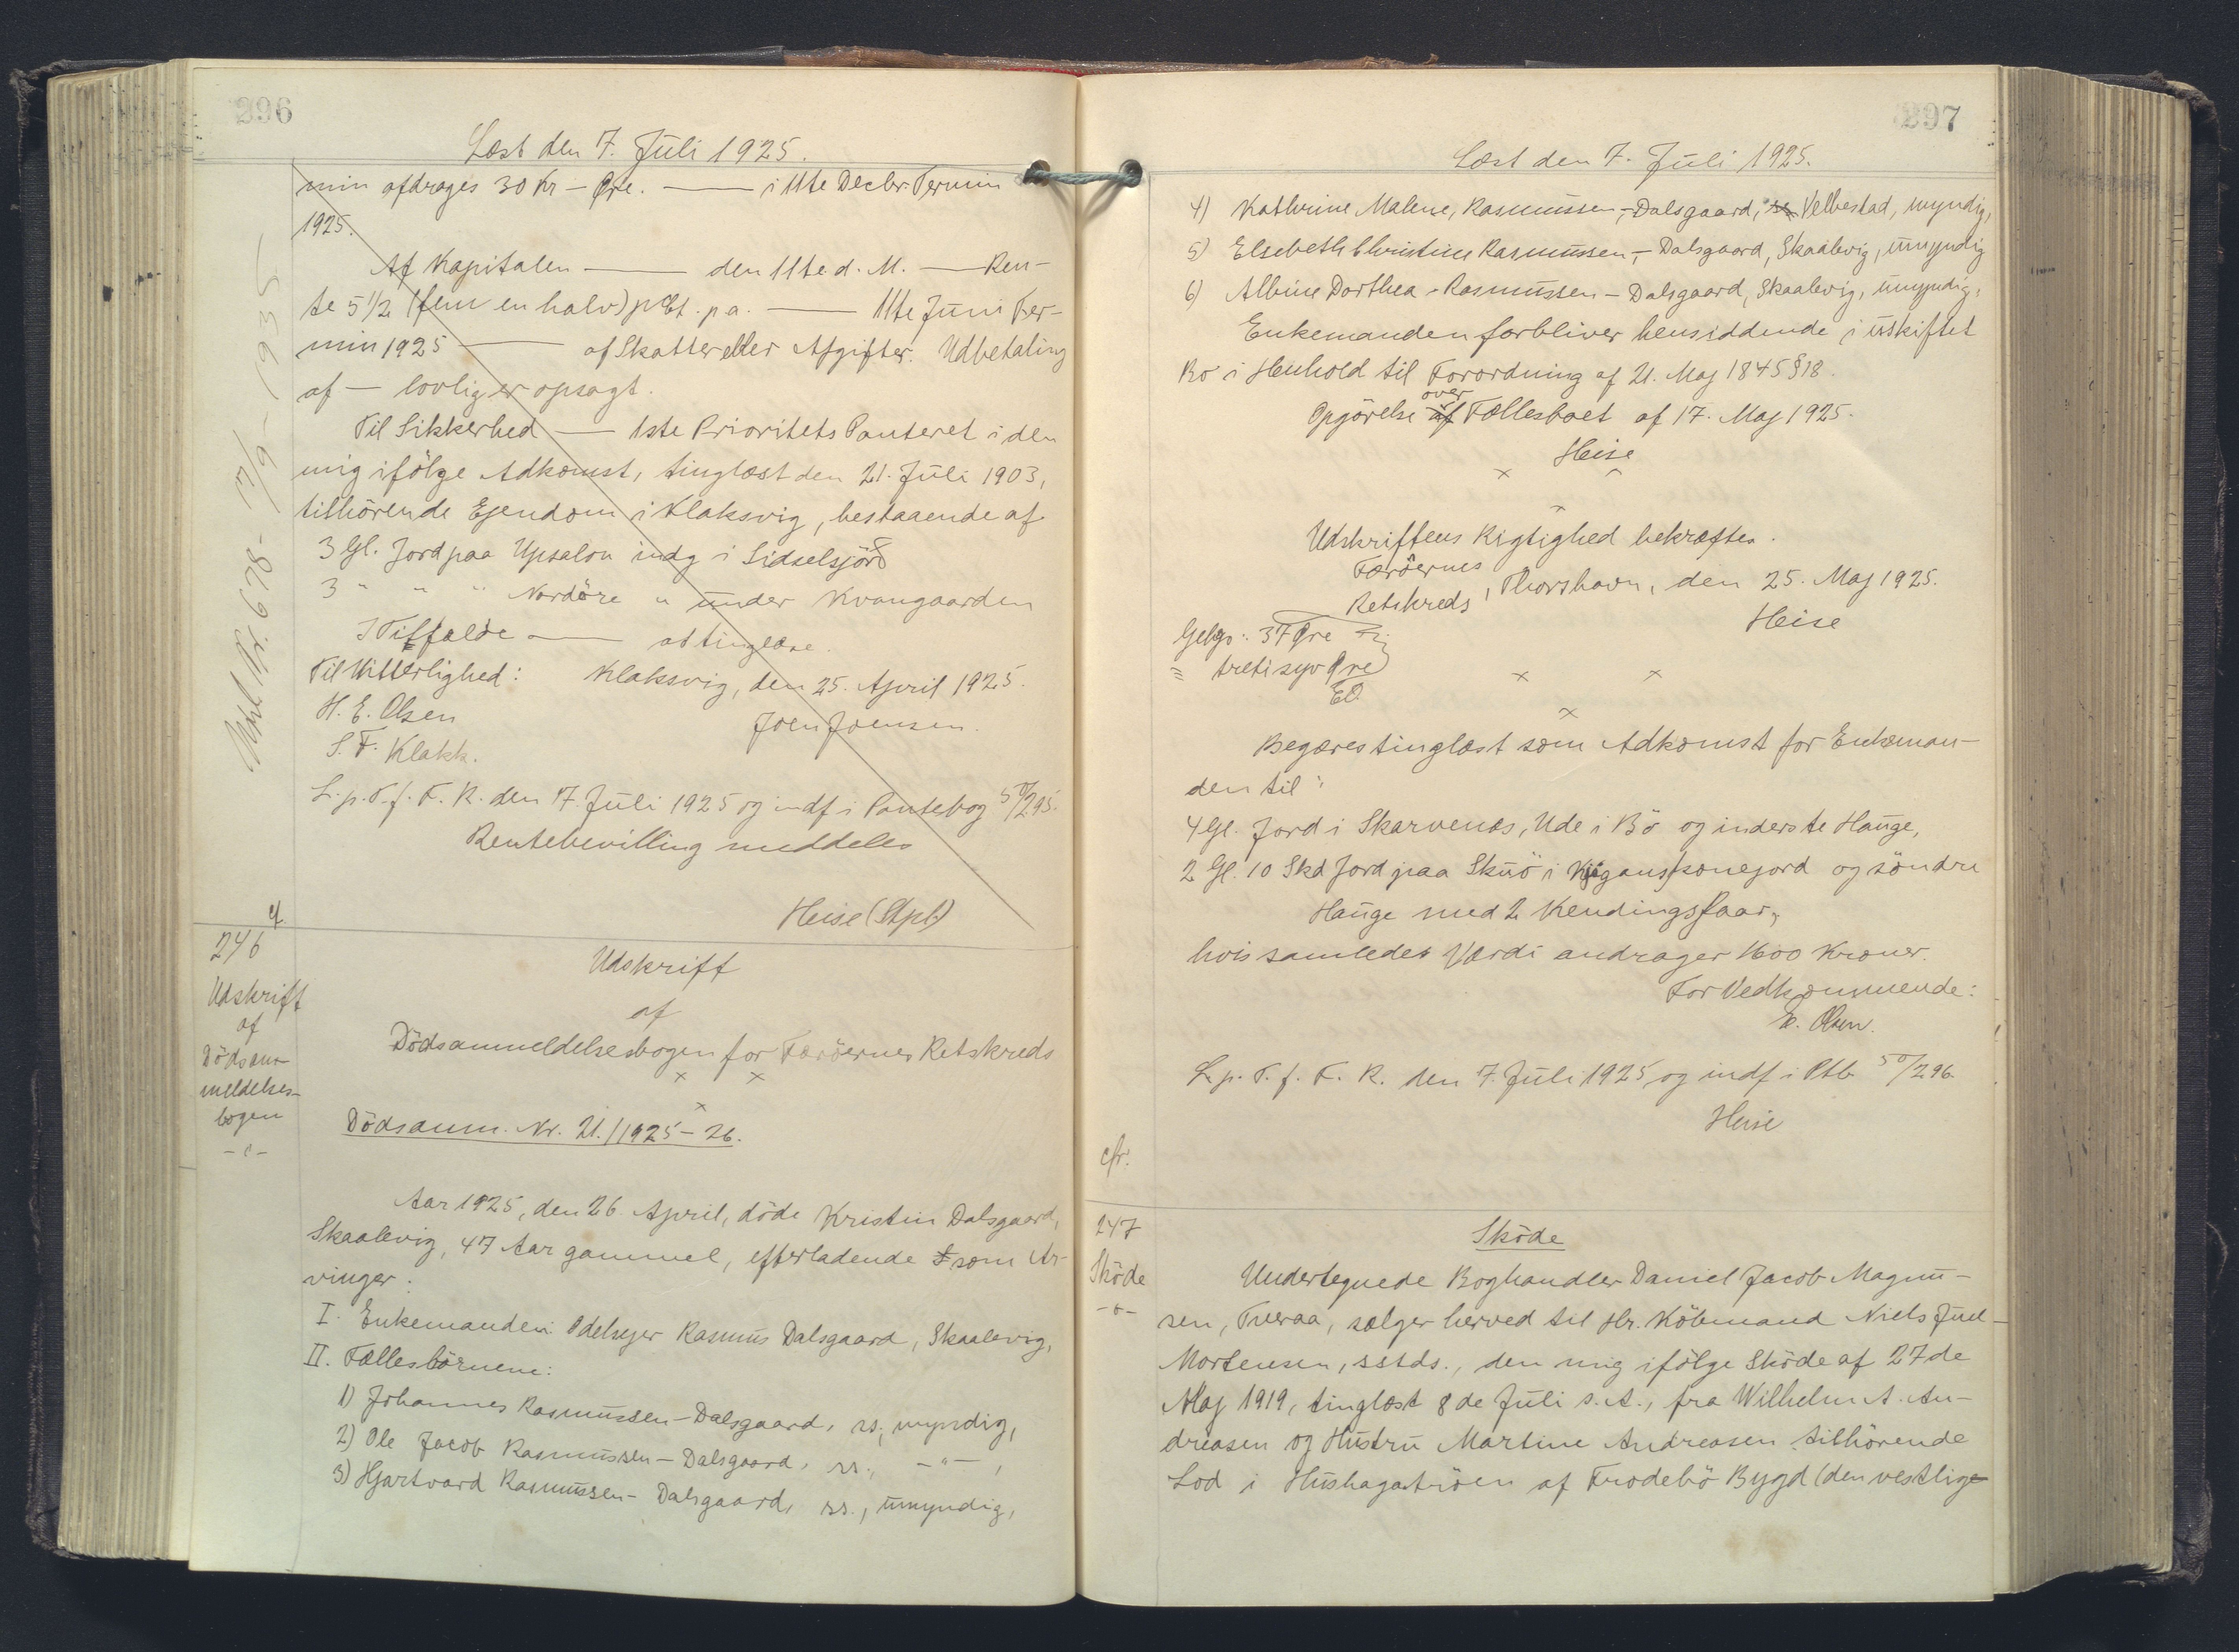 296
Læst den 7. Juli 1925.
min afdrages 30 Kr – Øre. —— i 11te Decbr. Termin
1925.
Af Kapitalen —— den 11te d. M. —— Ren-
te 5 1/2 (fem en halv) pCt. p a. —— 11te Juni Ter-
min 1925 —— af Skatter eller Afgifter. Udbetaling
af — lovlig er opsagt.
Til Sikkerhed —— 1ste Prioritets Panteret i den
mig ifölge Adkomst, tinglæst den 21. Juli 1903,
tilhörende Ejendom i Klaksvig, bestaaende af
3 Gl. Jord paa Upsalon indg i Sidselsjörd
3 " " " Nordöre " under Kvangaarden
I Tilfælde —— at tinglæse.
Til Vitterlighed: Klaksvig, den 25. April 1925.
H. E. Olsen
Joen Joensen.
S. F. Klakk.
L. p. T. f. F. R. den 7. Juli 1925 og indf i Pantebog 50/295.
Rentebevilling meddeles
Heise (Stpl.)
Nr. 678- 17/9- 1935
cf.
246
Udskrift
af
Dödsan-
meldelses-
bogen
-"-
Udskrift
af
Dödsanmeldelsesbogen for Færöernes Retskreds
x x
x
Dödsanm. Nr. 21./1925-26.
Aar 1925, den 26 April, döde Kristin Dalsgaard,
Skaalevig, 47 Aar gammel, efterladende som Ar-
vinger:
I. Enkemanden Odelsejer Rasmus Dalsgaard, Skaalevig,
II. Fællesbörnene:
1) Johannes Rasmussen-Dalsgaard, ss., myndig,
2) Ole Jacob Rasmussen-Dalsgaard, ss., -"-,
3) Hjartvard Rasmussen-Dalsgaard, ss., umyndig,
297
Læst den 7. Juli 1925.
4) Kathrine Malene, Rasmussen-Dalsgaard, ss Velbestad, myndig,
5) Elsebeth Christine Rasmussen-Dalsgaard, Skaalevig, umyndig
6) Albine Dorthea Rasmussen-Dalsgaard, Skaalevig, umyndig,
Enkemanden forbliver hensiddende i uskiftet
Bo i Henhold til Forordning af 21. Maj 1845 § 18.
Opgörelse af over Fællesboet af 17. Maj 1925.
Heise
x x
x
Udskriftens Rigtighed bekræftes.
Færöernes
Retskreds, Thorshavn, den 25. Maj 1925.
Heise
Gebyr: 37 Øre
= tretisyv Øre
EO.
x x
x
Begæres tinglæst som Adkomst for Enkeman-
den til:
4 Gl. Jord i Skarvenæs, Ude i Bö og inderste Hauge,
2 Gl. 10 Skd Jord paa Skuö i Kjøganskonejord og söndre
Hauge med 2 Kendingsfaar,
hvis samlede Værdi andrager 1600 Kroner.
For Vedkommende:
E. Olsen.
L. p. T. f. F. R. den 7. Juli 1925 og indf i Ptb 50/296.
Heise
cfr.
247
Sköde
-o-
Sköde
Undertegnede Boghandler Daniel Jacob Magnu-
sen, Tveraa, sælger herved til Hr. Köbmand Niels Juel-
Mortensen, sstds., den mig ifölge Sköde af 27de
Maj 1919, tinglæst 8de Juli s. A., fra Wilhelm A. An-
dreasen og Hustru Martine Andreasen tilhörende
Lod i Hushagatröen af Frodebö Bygd (den vestlige